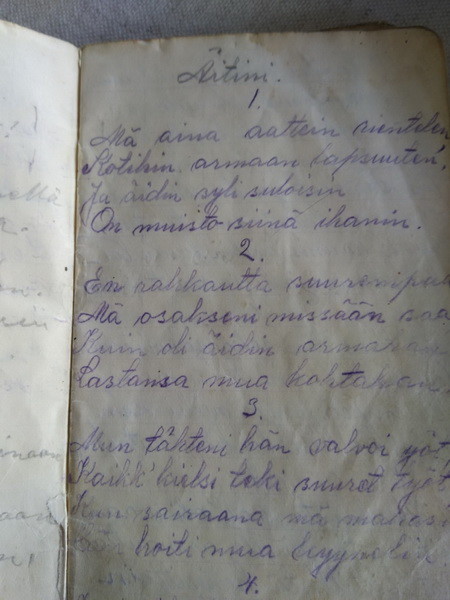 Äitini.
1.
Mä aina aattein rientelen
Kotihin armaan lapsuuten,
Ja äidin syli suloisin
On muisto siinä ihanin.
2.
En rakkautta suurempaa
Mä osakseni missään saa
Kuin oli äidin armahan
Lastansa mua kohtahan.
3.
Mun tähteni hän valvoi yöt,
Kaikk' teki suuret työt
Kun sairaana mä makasi
hoiti mua
4.